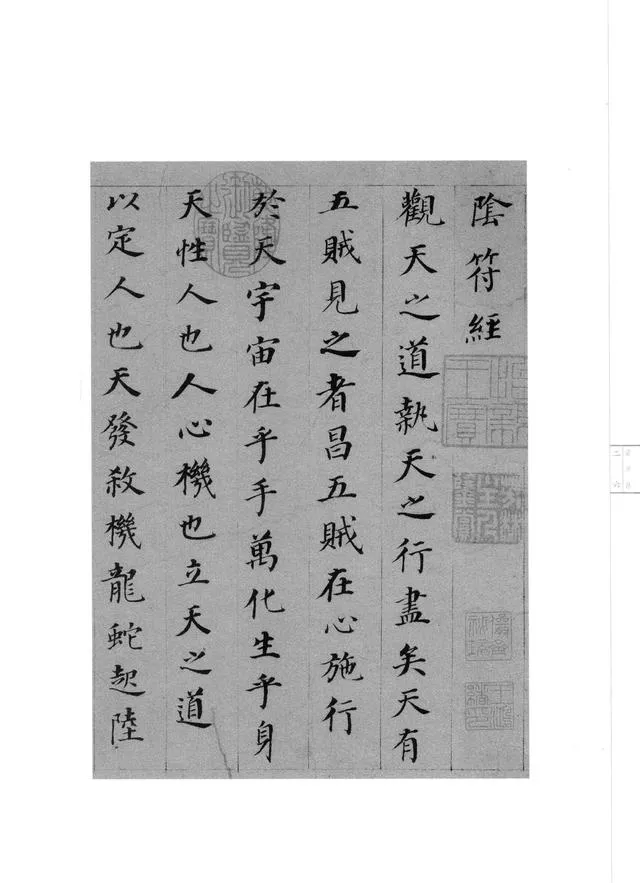 陰符經
觀天之道執天之行盡矣天有
五賊見之者昌五賊在心施行
於天宇宙在乎手萬化生乎身
天性人也人心機也立天之道
以定人也天發殺機龍蛇起陸